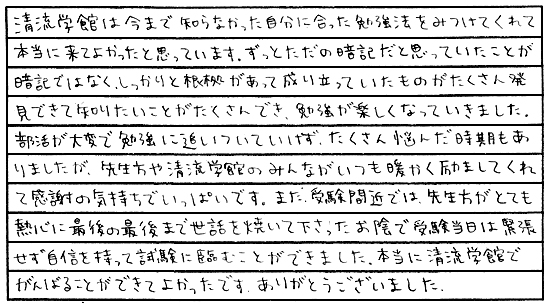 清流学館は今まで知らなかった自分に合った勉強法をみつけてくれて
本当に来てよかったと思っています。ずっとただの暗記だと思っていたことが
暗記ではなく、しっかりと根拠があって成り立っていたものがたくさん発
見できて知りたいことがたくさんでき、勉強が楽しくなっていきました。
部活が大変で勉強に追いついていけず、たくさん悩んだ時期もあ
りましたが、先生方や清流学館のみんながいつも暖かく励ましてくれ
て感謝の気持ちでいっぱいです。また、受験間近では、先生方がとても
熱心に最後の最後まで世話を焼いて下さったお陰で受験当日は緊張
せず自信を持って試験に臨むことができました。本当に清流学館で
がんばることができてよかったです。ありがとうございました。